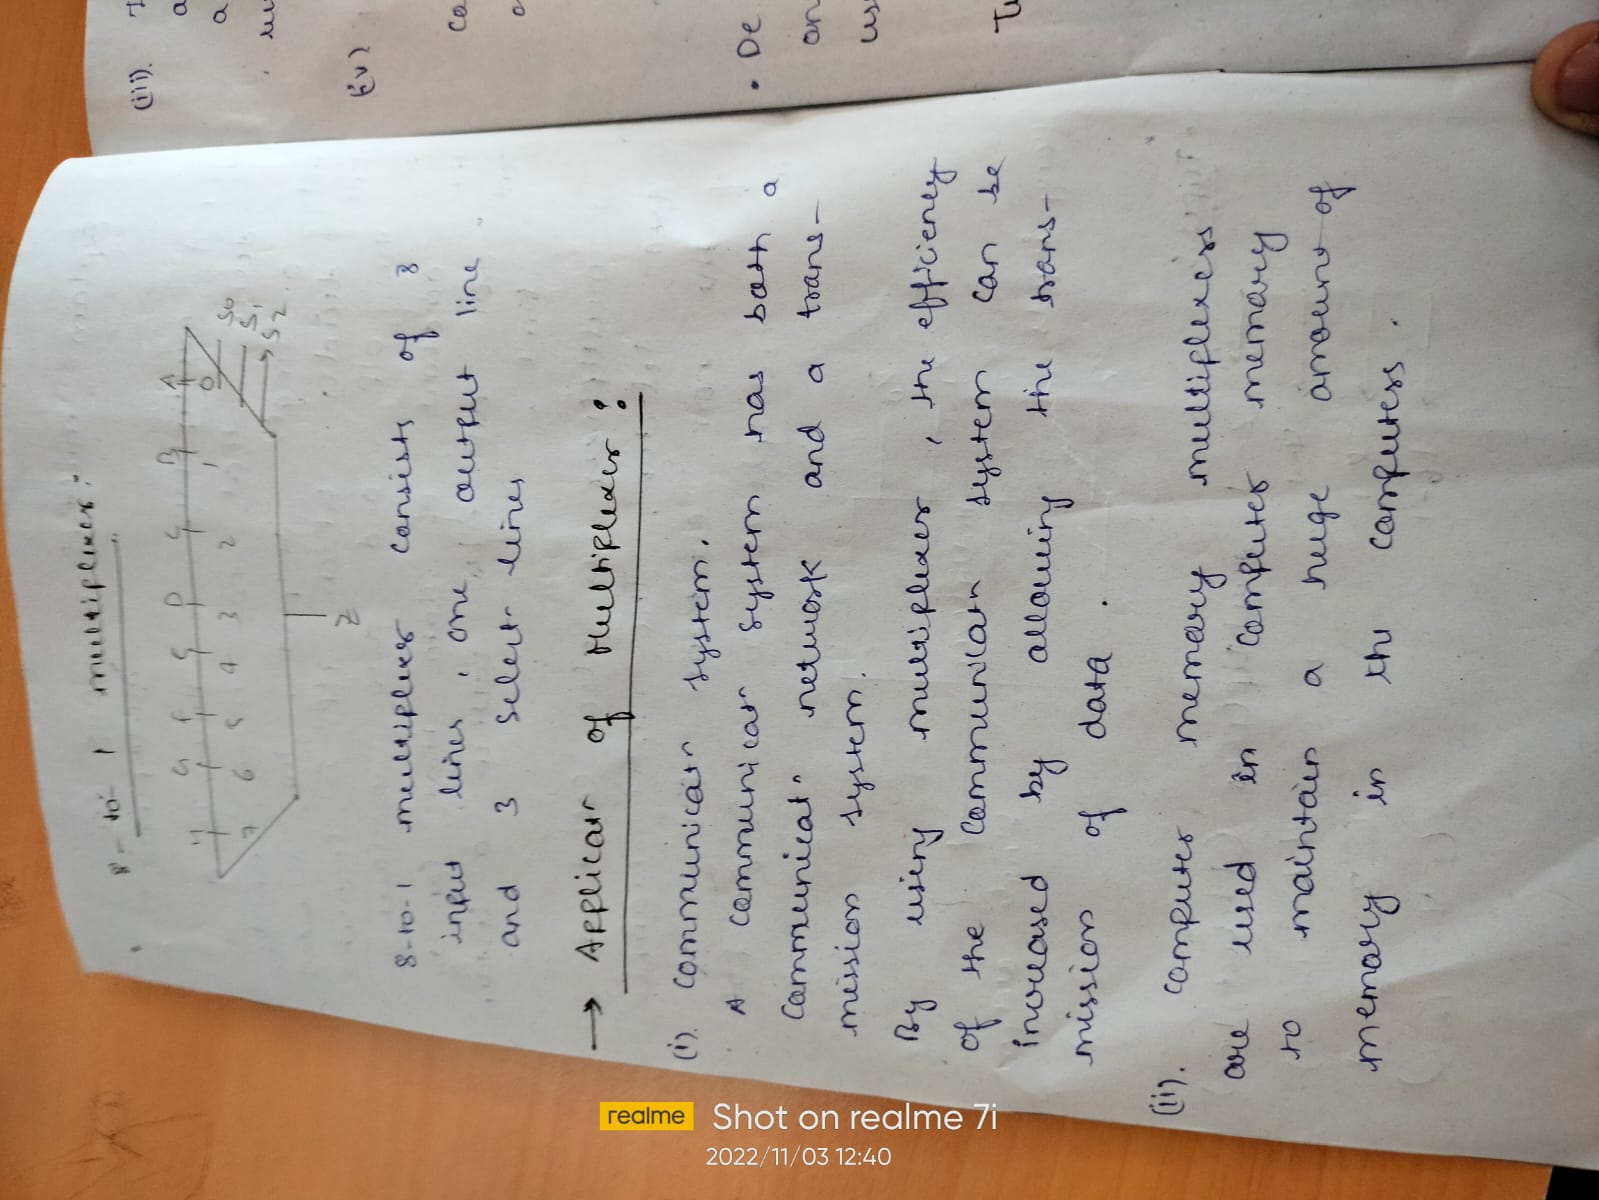 8-to-1 multiplexer:
H G F E D C B A
7 6 5 4 3 2 1 0
S0
S1
S2
Z
8-to-1 multiplexer consists of 8
input lines, one output line
and 3 select lines
→ Applicatn of Multiplexer:
(i). Communicatn system.
A communicatn system has both a
communicatn network and a trans-
mission system.
By using multiplexer, the efficiency
of the communicatn system can be
increased by allowing the trans-
mission of data.
(ii). Computer memory multiplexers
are used in computer memory
to maintain a huge amount of
memory in the computers.
(iii).
a
a
(iv)
ca
• De
an
us
realme Shot on realme 7i
2022/11/03 12:40